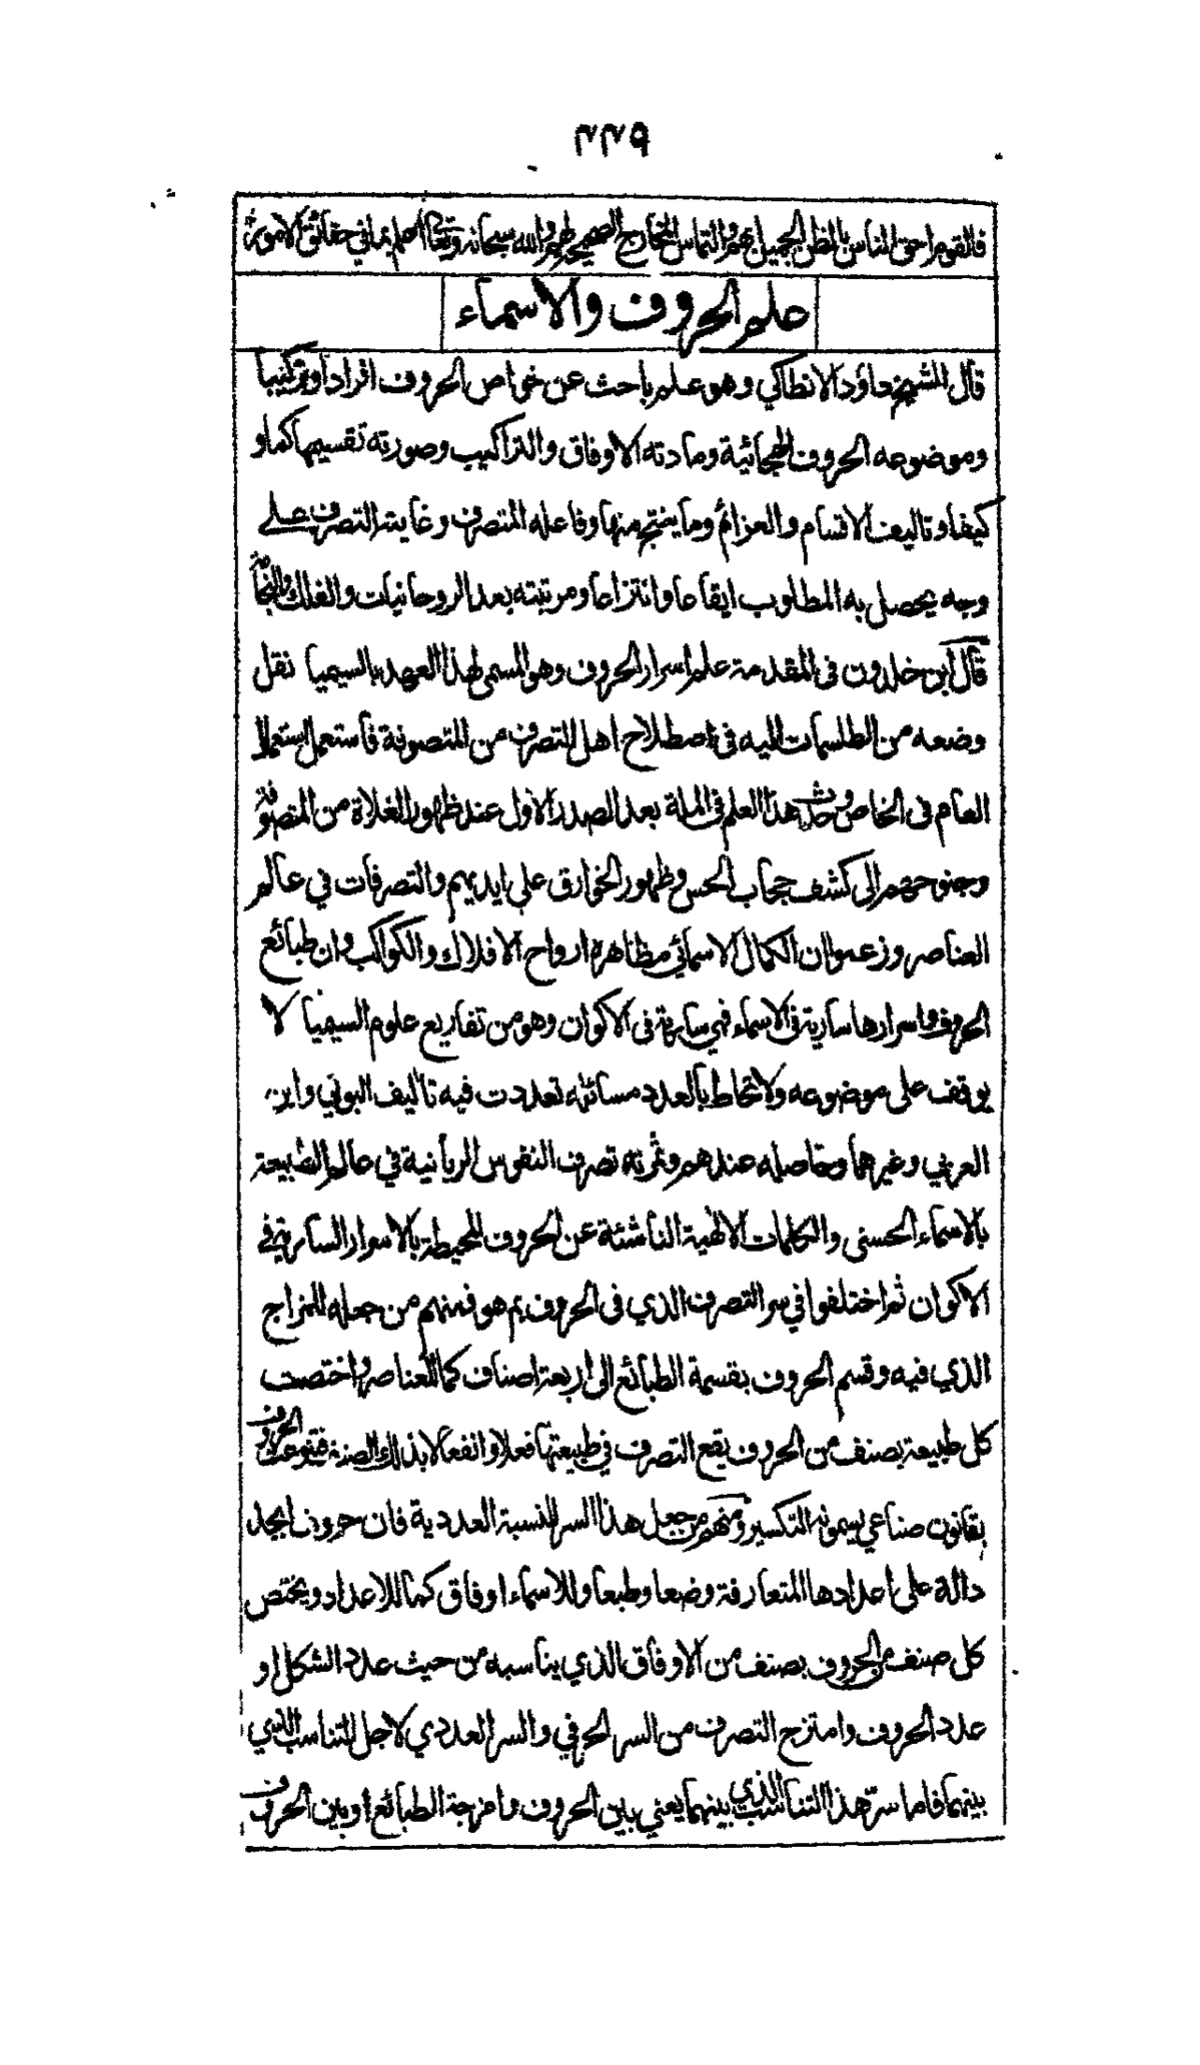 ٣٣٩
فالقوم احق الناس بالظن الجميل بهم والتماس المخارج الصحيحة لهم والله سبحانه وتعالى اعلم بما في حقائق الامور
علم الحروف والاسماء
قال الشيخ داؤد الانطاكي وهو علم باحث عن خواص الحروف افرادا وتركيبا
وموضوعه الحروف الهجائية ومادته الاوفاق والتراكيب وصورته تقسيمها كما و
كيفا وتاليف الاقسام والعزائم وما ينتج منها وفاعله المتصرف وغايته التصرف على
وجه يحصل به المطلوب ايقاعا وانتزاعا ومرتبته بعد الروحانيات والفلك والنجامة
قال ابن خلدون فى المقدمة علم اسرار الحروف وهو المسمى لهذا العهد بالسيميا نقل
وضعه من الطلسمات اليه فى اصطلاح اهل التصرف من المتصوفة فاستعمل استعمال
العام فى الخاص وحدث هذا العلم فى الملة بعد الصدر الاول عند ظهور الغلاة من المتصوفة
وجنوحهم الى كشف حجاب الحس وظهور الخوارق على ايديهم والتصرفات في عالم
العناصر وزعموا ان الكمال الاسمائي مظاهره ارواح الافلاك والكواكب وان طبائع
الحروف واسرارها سارية فى الاسماء فهي سارية فى الاكوان وهو من تفاريع علوم السيميا لا
يوقف على موضوعه ولا تحاط بالعدد مسائله تعددت فيه تاليف البوني وابن
العربي وغيرهما وحاصله عندهم وثمرته تصرف النفوس الربانية في عالم الطبيعة
بالاسماء الحسنى والكلمات الالهية الناشئة عن الحروف المحيطة بالاسرار السارية في
الاكوان ثم اختلفوا في سر التصرف الذي فى الحروف بم هو فمنهم من جعله للمزاج
الذي فيه وقسم الحروف بقسمة الطبائع الى اربعة اصناف كما للعناصر واختصت
كل طبيعة بصنف من الحروف يقع التصرف في طبيعتها فعلا وانفعالا بذلك الصنف فتنوعت الحروف
بقانون صناعي يسمونه التكسير ومنهم من جعل هذا السر للنسبة العددية فان حروف ابجد
دالة على اعدادها المتعارفة وضعا وطبعا وللاسماء اوفاق كما للاعداد ويختص
كل صنف من الحروف بصنف من الاوفاق الذي يناسبه من حيث عدد الشكل او
عدد الحروف وامتزج التصرف من السر الحرفي والسر العددي لاجل التناسب الذي
بينهما فاما سرّ هذا التناسب الذي بينهما يعني بين الحروف وامزجة الطبائع او بين الحروف